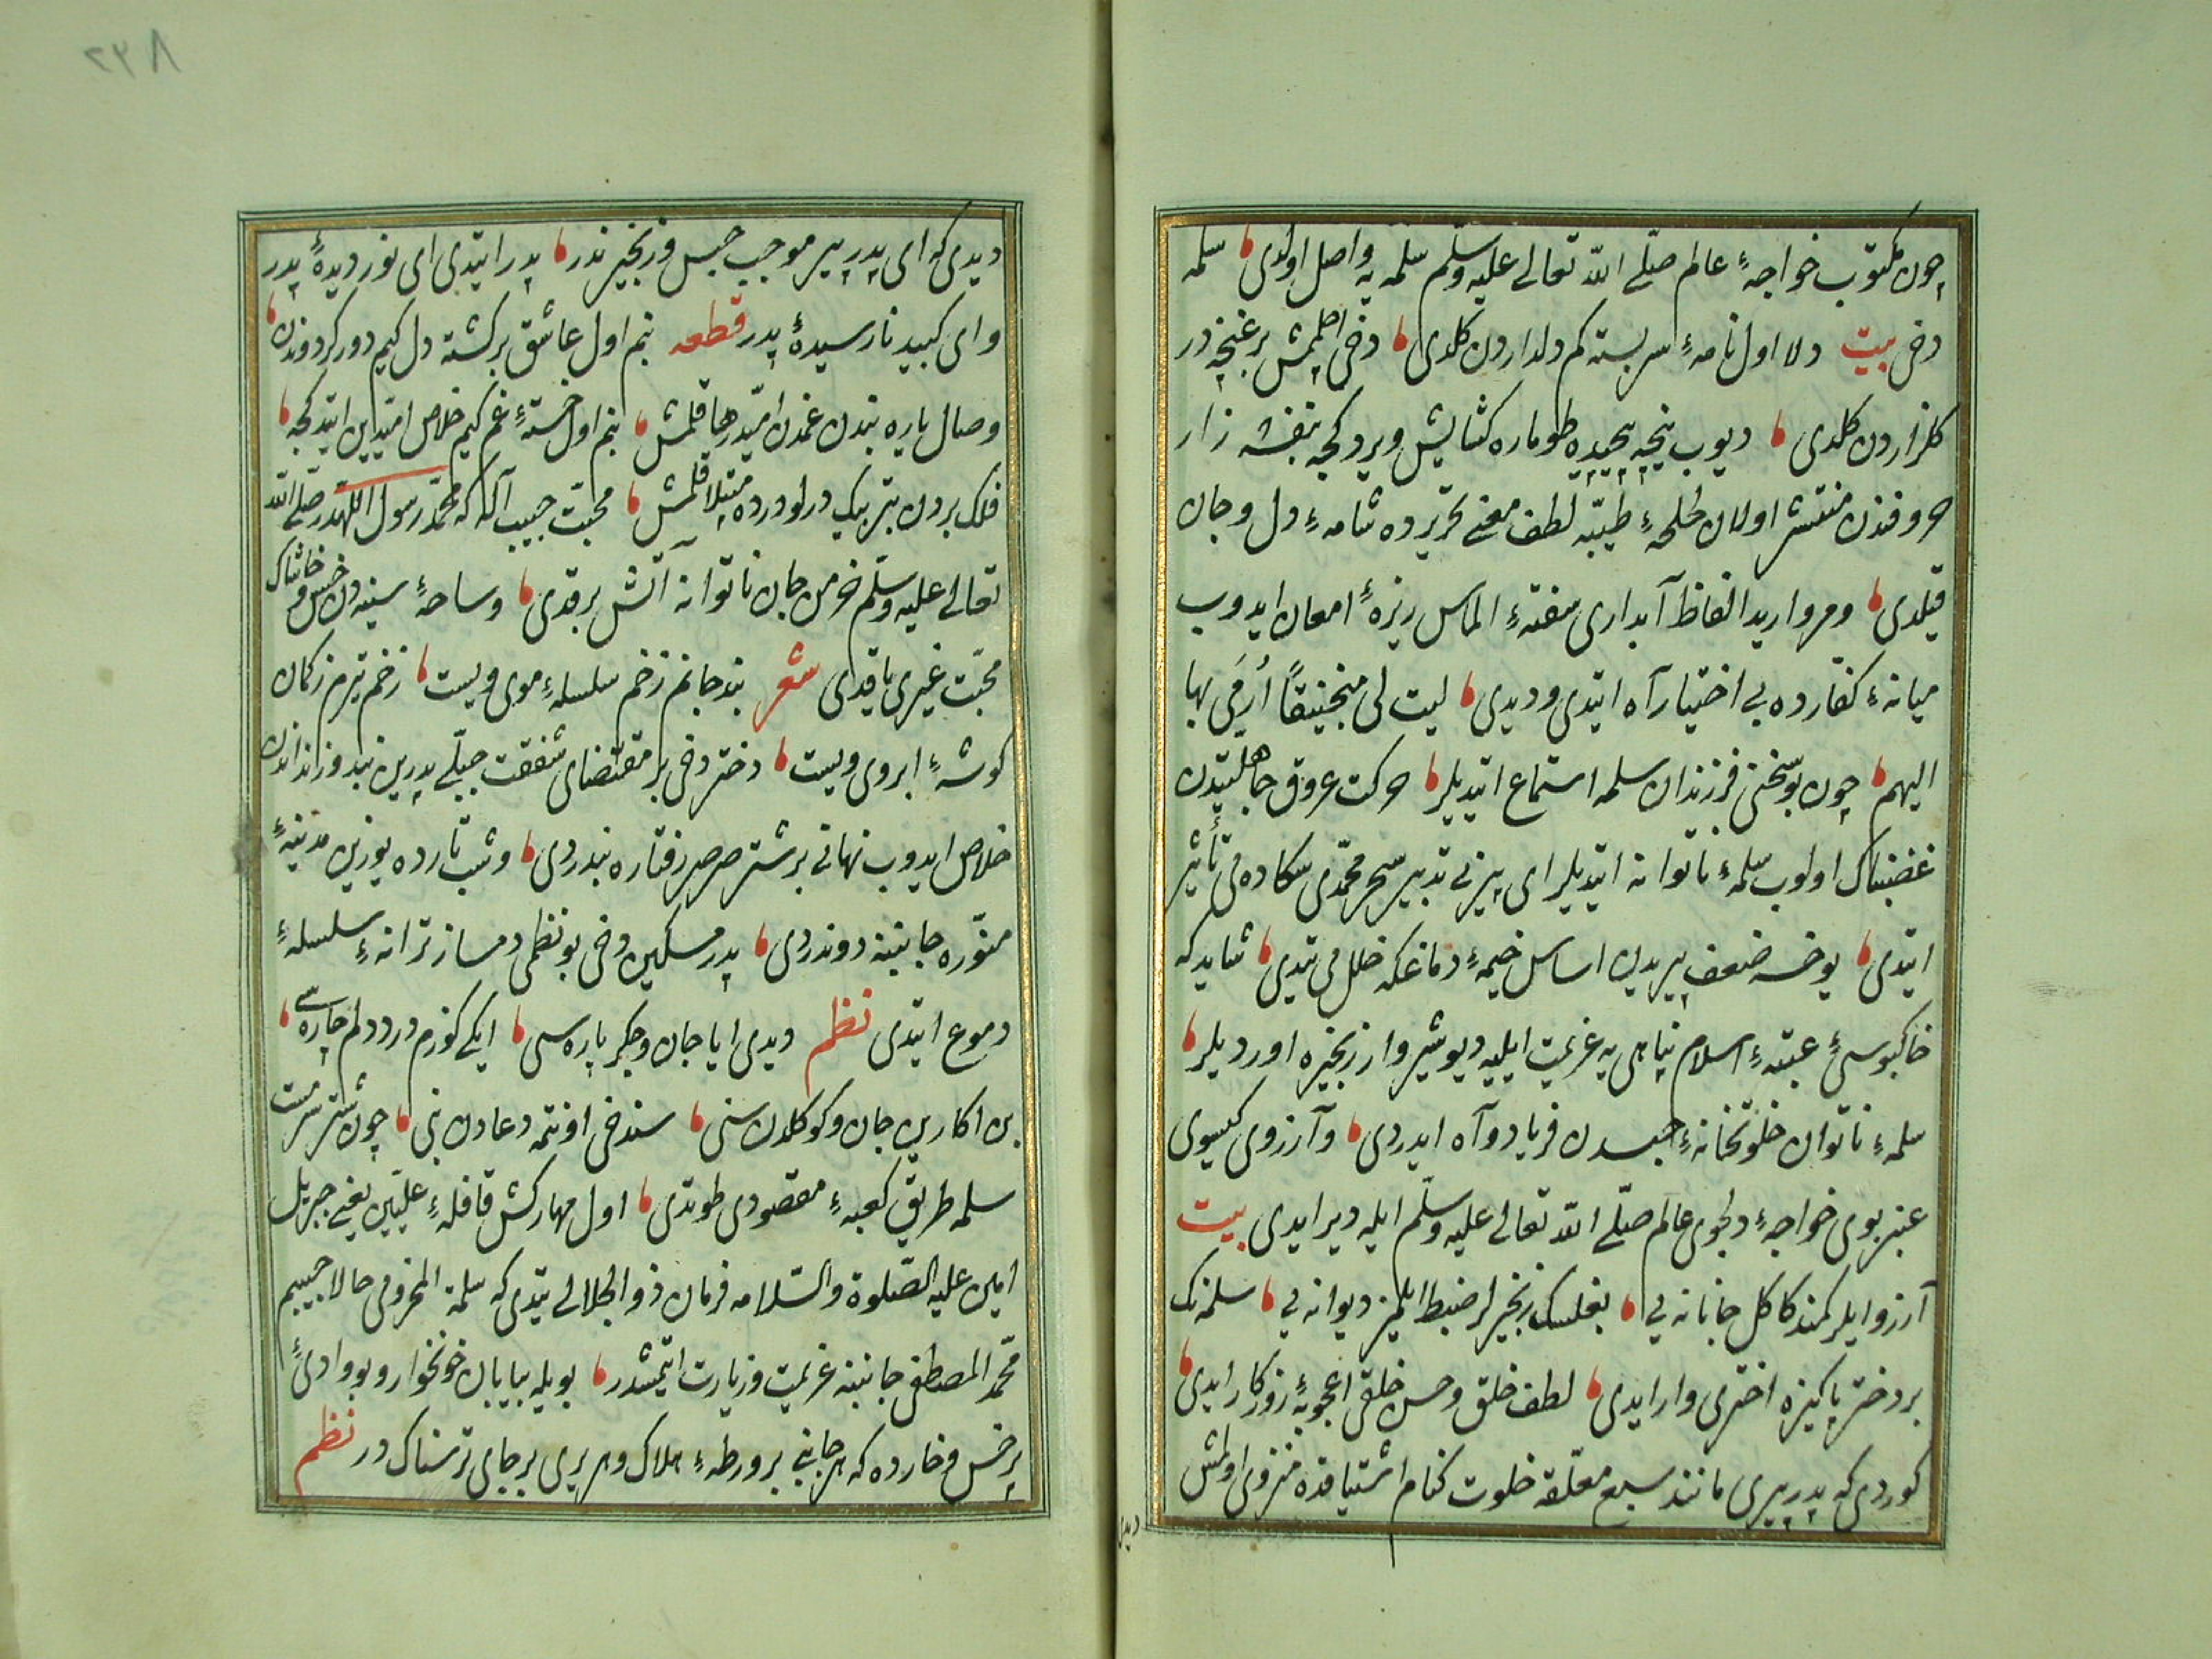 چون مکتوب خواجهٔ عالم صلّی اللّه تعالی علیه وسلّم سلمه یه واصل اولدی سلمه
دخی بیت دلا اول نامهٔ سربسته کم دلداردن کلدی دخی اچلمش بر غنچه در
کلزاردن کلدی دیوب پنجه پیچیده طوماره کشایش ویردکجه بنفشه زار
حروفدن منتشر اولان لخلخهٔ طیبّه لطف معنی تحریرده شامهٔ دل و جان
قیلدی و مروارید الفاظ آبداری سفتهٔ الماس ریزهٔ امعان ایدوب
میانهٔ کفارده بی اختیار آه ایتدی ودیدی لیت لی منجنیقاً اُرمی بها
الیهم چون بو سخنی فرزندان سلمه استماع ایتدیلر حرکت عروق جاهلیتدن
غضبناک اولوب سلمهٔ ناتوانه ایتدیلر ای پیر بی تدبیر سحر محمّدی سکا ده می تأثیر
ایتدی یوخسه ضعف پیریدن اساس خیمهٔ دماغکه خلل می یتدی شاید که
خاکبوسیٔ عتبهٔ اسلام پناهی یه عزیمت ایلیه دیو شیروار زنجیره اوردیلر
سلمهٔ ناتوان خلوتخانهٔ حبسدن فریاد و آه ایدردی و آرزوی کیسوی
عنبر بوی خواجهٔ دلجوی عالم صلّی اللّه تعالی علیه وسلّم ایله دیر ایدی بیت
آرزو ایلر کمند کاکل جانانه یی بغلسک زنجیرلر ضبط ایلمز دیوانه یی سلمه نک
بر دختر پاکیزه اختری وار ایدی لطف خلق و حسن خلقی اعجوبهٔ روزکار ایدی
کوردی که پدر پیری مانند سبع معلّقه خلوت کنام اشتیاقده منزوی اولمش
دیدی
دیدی که ای پدر پیر موجب حبس و زنجیر ندر پدر ایتدی ای نور دیدهٔ پدر
و ای کبید نارسیدهٔ پدر قطعه بنم اول عاشق برکشته دل کیم دور کردوندن
وصال یاره بندن غمدن امیّد رها قلمش بنم اول خستهٔ غم کیم خلاص امیّدین ایتدکجه
فلک بردن بتر بیک درلو درده مبتلا قلمش محبّت حبیب آله که محمّد رسول اللّهدر صلّی اللّه
تعالی علیه وسلّم خرمن جان ناتوانه آتش برقدی و ساحهٔ سینه دن خس و خاشاک
محبّت غیری یاقدی شعر بند جانم زخم سلسلهٔ موی ویست زخم تیرم ز کمان
کوشهٔ ابروی ویست دختر دخی بر مقتضای شفقت جبلّی پدرین بند و زنداندن
خلاص ایدوب نهانی بر شتر صرصر رفتاره بندردی و شب تارده یوزین مدینهٔ
منوّره جانبنه دوندردی پدر مسکین دخی بو نظمی دمساز ترانهٔ سلسلهٔ
دموع ایتدی نظم دیدی ایا جان و جکر پاره سی ایکی کوزم درد دلم چاره سی
بن اکارین جان و کوکلدن سنی سندخی اونتمه دعادن بنی چون شتر سرمست
سلمه طریق کعبهٔ مقصودی طوتدی اول مهارکش قافلهٔ علیّین یعنی جبریل
امین علیه الصّلوة والسّلامه فرمان ذو الجلالی یتدی که سلمة المخزومی حالا حبیبم
محمّد المصطفی جانبنه عزیمت و زیارت ایتمشدر بویله بیابان خونخوار و بو وادیٔ
پر خس و خارده که هر جانبی بر ورطهٔ هلاک و هر یری بر جای ترسناک در نظم